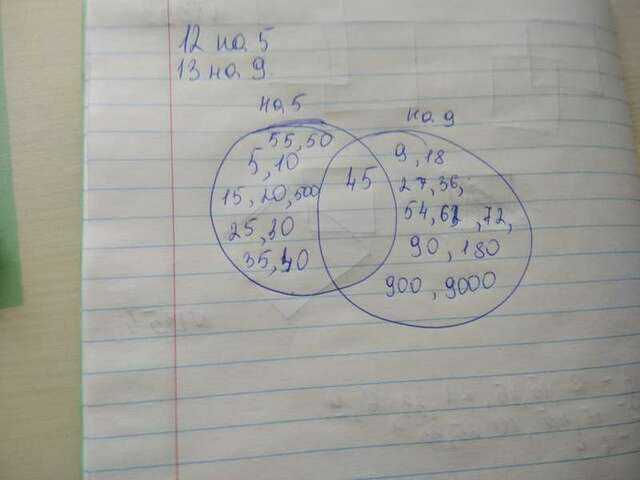 12 на 5
13 на 9
на 5
на 9
55, 50
5, 10
15, 20, 500
25, 30
35, 40
45
9, 18
27, 36,
54, 62, 72,
90, 180
900, 9000